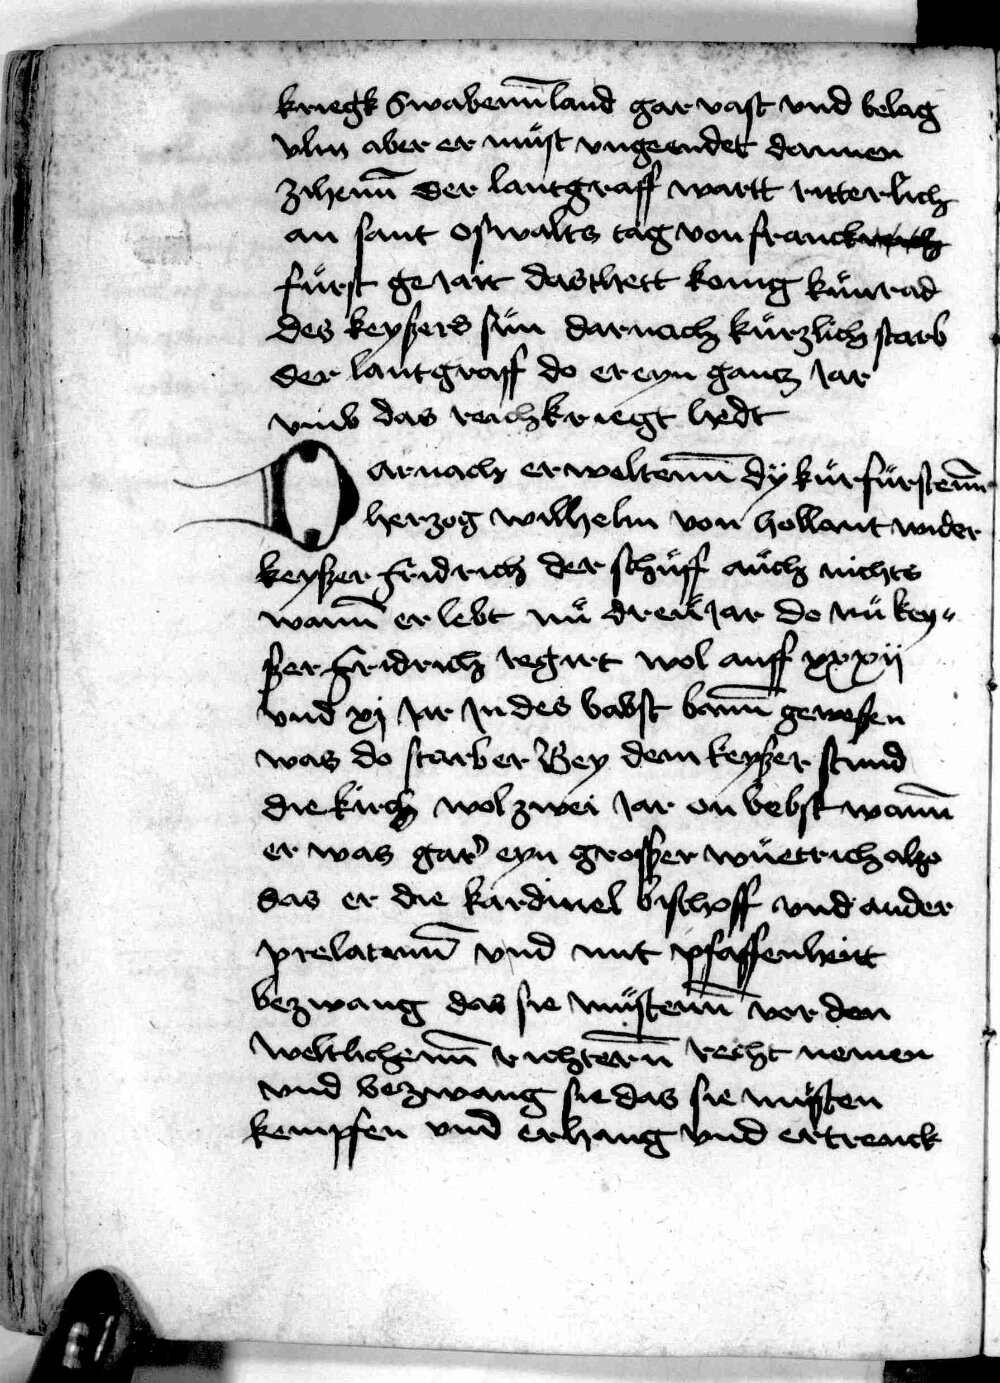 kriegk Swabenn̄land gar vast vnd belag
vlm aber er müst vngeendet dannen
zihenn̄ Der lantgraff wartt ritterlich
an sant oswalts tag von franck
fürst geiait das thett konig künrad
des keyßers sün darnach kürzlich starb
der lantgraff do er eyn gantz Jar
vmb das reich kriegt hedt
Darnach erweltenn̄ dÿ kürfürstenn̄
herzog wilhelm von hollant wider
keyßer fridrich der schüff aüch nichts
wann̄ er lebt nü dreü Jar do nü key„
ßer fridrich regirt wol auff xxxij
vnd xj Jar In des babst bann̄ gewesen
was do starb er Bey dem keyßer stund
die kirch wol zwei Jar on bebst wann̄
er was gar eyn grosser wüetrich alzo
das er die kardinel bischoff vnd ander
prelatenn̄ vnd mit pfaffenheitt
bezwang das sie müstenn̄ vor den
weltlichenn̄ richternn̄ recht nemen
vnd bezwang sie das sie müsten
kempfen vnd erhang vnd ertrenck